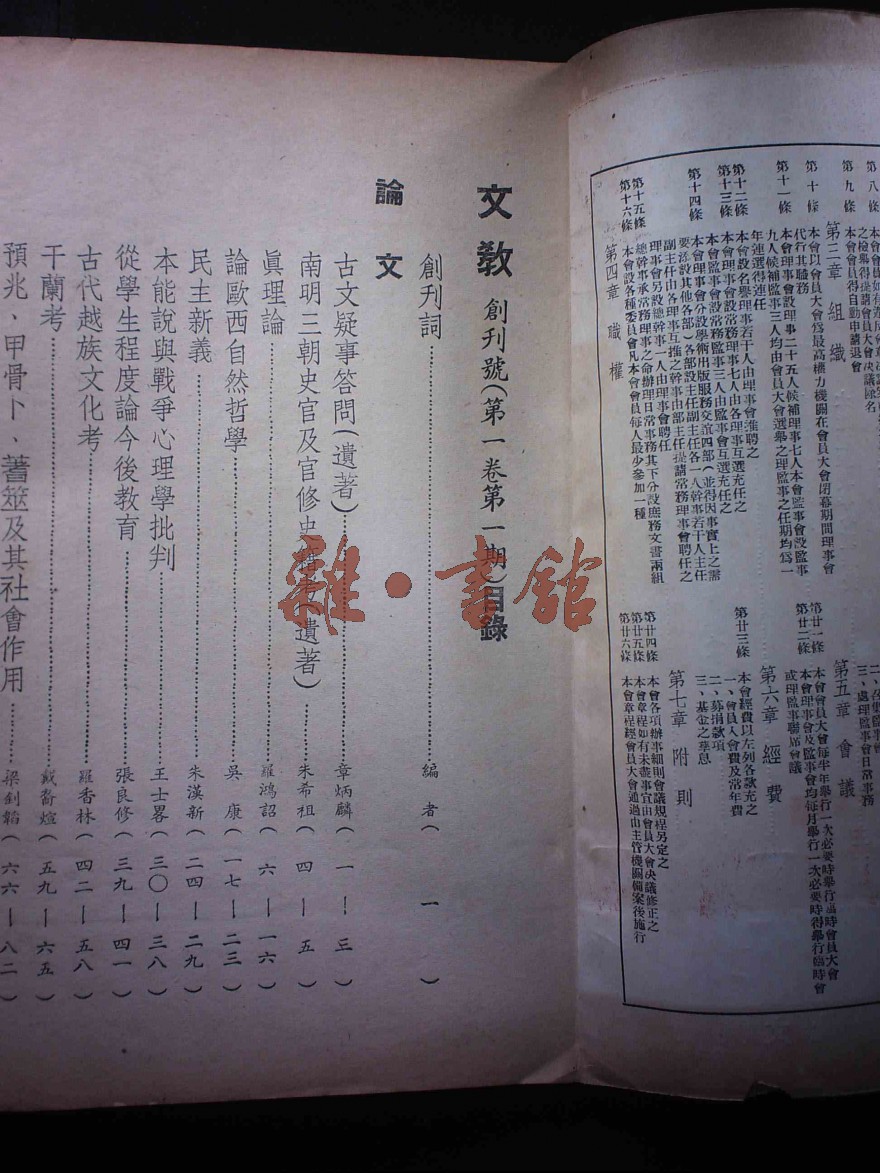 第九條 本會會員得自動申請退會
第三章 組織
第十條 本會以會員大會爲最高權力機關在會員大會閉幕期間理事會
代行其職務
第十一條 本會理事會設理事二十五人候補理事七人本會監事會設監事
九人候補監事三人均由會員大會選舉之理監事之任期均爲一
年連選得連任
第十二條 本會設名譽理事若干人由理事會推聘之
第十三條 本會理事會設常務理事七人由各理事互選充任之
本會監事會設常務監事三人由監事會互選充任之
第十四條 本會理事會分設學術出版服務交誼四部(並得因事實上之需
要添設其他各部)各部設主任副主任各一人幹事若干人主任
副主任由各理事互推之幹事由部主任提請常務理事會聘任之
第十五條 理事會另設總幹事一人由理事會聘任
總幹事承常務理事之命辦理日常事務其下分設庶務文書兩組
第十六條 本會設各種委員會凡本會會員每人最少參加一種
第四章 職權
三、處理監事會日常事務
第五章 會議
第廿一條 本會會員大會每半年舉行一次必要時舉行臨時會員大會
第廿二條 本會理事會及監事會均每月舉行一次必要時得舉行臨時會
或理監事聯席會議
第六章 經費
第廿三條 本會經費以左列各款充之
一、會員入會費及常年費
二、募捐款項
三、基金之孳息
第七章 附則
第廿四條 本會各項辦事細則會議規程另定之
第廿五條 本會章程如有未盡事宜由會員大會決議修正之
第廿六條 本會章程經會員大會通過由主管機關備案後施行
文教 創刊號(第一卷第一期)目錄
創刊詞 編者(一)
論文
古文疑事答問(遺著) 章炳麟(一—三)
南明三朝史官及官修史籍考(遺著) 朱希祖(四—五)
眞理論 羅鴻詔(六—一六)
論歐西自然哲學 吳康(一七—二三)
民主新義 朱漢新(二四—二九)
本能說與戰爭心理學批判 王士畧(三〇—三八)
從學生程度論今後教育 張良修(三九—四一)
古代越族文化考 羅香林(四二—五八)
干蘭考 戴裔煊(五九—六五)
預兆、甲骨卜、蓍筮及其社會作用 梁釗韜(六六—八二)
雜·書館